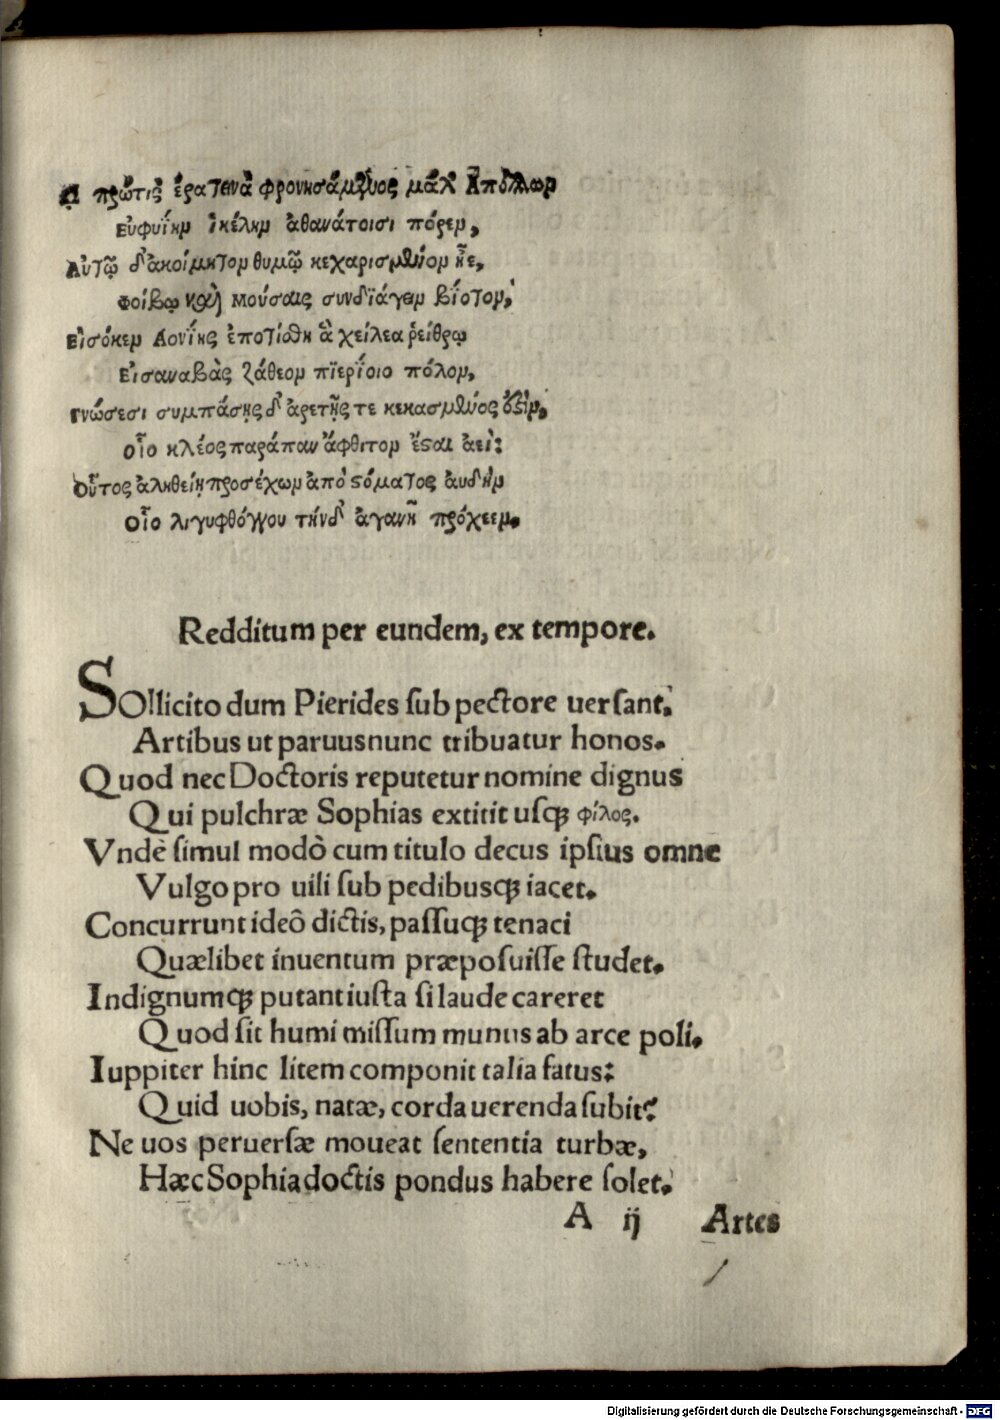 πρῶτις ἐρατεινὰ φρονησάμενος μὰχ Ἀπόλλωρ
Εὐφυΐημ ἰκέλημ ἀθανάτοισι πόρεμ,
Αὐτῷ δ' ἀκοίμητομ θυμῷ κεχαρισμένομ ἦε,
Φοίβῳ καὶ Μούσαις συνδϊάγεμ βίοτομ,
Εἰσόκεμ Αονΐης ἐποτίσθη ἃ χείλεα ῥείθρῳ
Εἰσαναβὰς ζάθεομ πϊερΐοιο πόλομ,
Γνώσεσι συμπάσης δ' ἀρετῆς τε κεκασμένος
οἷο κλέος παράπαν ἄφθιτομ ἔσαι ἀεί:
Οὗτος ἀληθείῃ προσέχωμ ἀπὸ στόματος ἀυδὴμ
οἷο λιγυφθόγγου τήνδ' ἀγανῆ πρόχεεμ.
Redditum per eundem, ex tempore.
SOllicito dum Pierides ſub pectore uerſant,
Artibus ut paruus nunc tribuatur honos.
Quod nec Doctoris reputetur nomine dignus
Qui pulchræ Sophias extitit uſqꝫ φίλος.
Vndè ſimul modò cum titulo decus ipſius omne
Vulgo pro uili ſub pedibusqꝫ iacet.
Concurrunt ideô dictis, paſſuqꝫ tenaci
Quælibet inuentum præpoſuiſſe ſtudet.
Indignumqꝫ putant iuſta ſi laude careret
Quod ſit humi miſſum munus ab arce poli.
Iuppiter hinc litem componit talia fatus:
Quid uobis, natæ, corda uerenda ſubit?
Ne uos peruerſæ moueat ſententia turbæ,
Hæc Sophia doctis pondus habere ſolet.
A ij Artes
Digitalisierung gefördert durch die Deutsche Forschungsgemeinschaft - DFG